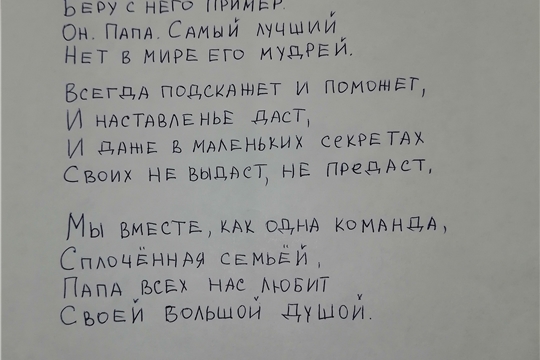 Беру с него пример.
Он. Папа. Самый лучший
Нет в мире его мудрей.
Всегда подскажет и поможет,
И наставленье даст,
И даже в маленьких секретах
Своих не выдаст, не предаст.
Мы вместе, как одна команда,
Сплочённая семьёй,
Папа всех нас любит
Своей большой душой.